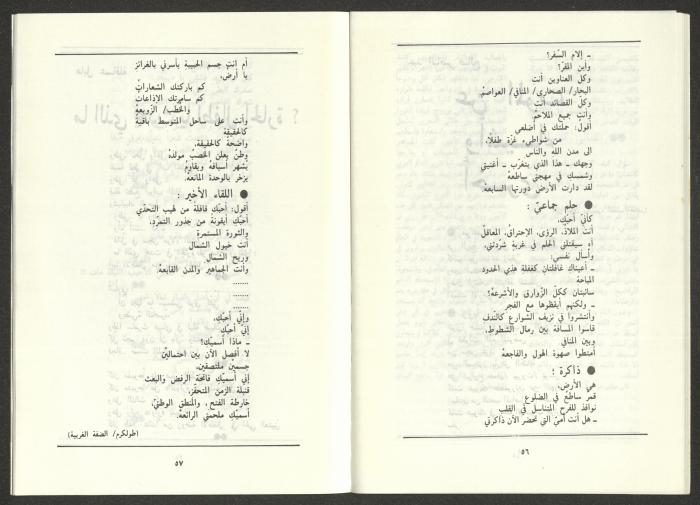 ـ إلامَ السّفر؟
وأين المفرّ؟
وكل العناوين أنت
البحار/ الصحارى/ المنافي/ العواصمُ
وكلّ القصائد أنت
وأنت جميعُ الملاحمْ
أقول: حملتك في أضلعي
من شواطىء غزّة طفلاً،
الى مدن الله والناس
وجهك ـ هذا الذي يتغرّب ـ أغنيتي
وشمسك في مهجتي ساطعهْ
لقد دارت الأرض دورتها السابعهْ
● حلم جماعيّ :
كأنّي أحبّك،
أنت الملاذ، الرؤى، الاحتراق، المعاقلُ
أو سيقتلني الحلم في غربةٍ شرّدتني،
وأسأل نفسي:
ـ أعيناك غافلتان كغفلة هذي الحدود
المباحهْ
سائبتان ككلّ الزّوارق والأشرعهْ؟
ـ ولكنهم أيقظوها مع الفجر
وأنتشروا في نزيف الشوارع كالنّدف
قاسوا المسافة بين رمال الشطوط،
وبين المنافي
أمتطوا صهوة الهول والفاجعهْ
● ذاكرة :
هي الأرض،
قمر ساطع في الضلوع
نوافذ للفرح المتناسل في القلب
ـ هل أنت أمّي التي تحضر الآن ذاكرتي
٥٦
أم إنت جسم الحبيبة يأسرني بالغرائز
يا أرض،
كم باركتك الشعارات
كم سامرتك الإذاعات
والخطب/ الزّوبعهْ
وأنت على ساحل المتوسط باقية
كالحقيقة
واضحة كالحقيقة،
وطنٌ يعلن الخصب مولدهُ
يشهر أسيافهُ ويقاوم
يزخر بالوحدة المانعهْ.
● اللقاء الأخير :
أقول: أحبّك قافلة من لهيب التحدّي
أحبّك أيقونة من جذور التمرّد،
والثورة المستمرة
أنت خيول الشمال
وريح الشمال
وأنت الجماهير والمدن القابعهْ.
.......
.......
.......
وإنّي أحبّك،
إنّي أحبّك
ـ ماذا أسمّيك؟!
لا أفصل الآن بين احتمالين
جسمين ملتصقين،
إني أسمّيك فاتحة الرفض والبعث
قنبلة الزمن المتحفّز،
خارطة الفتح، والمنطق الوطنيّ،
أسمّيك ملحمتي الرائعهْ.
(طولكرم/ الضفة الغربية)
٥٧